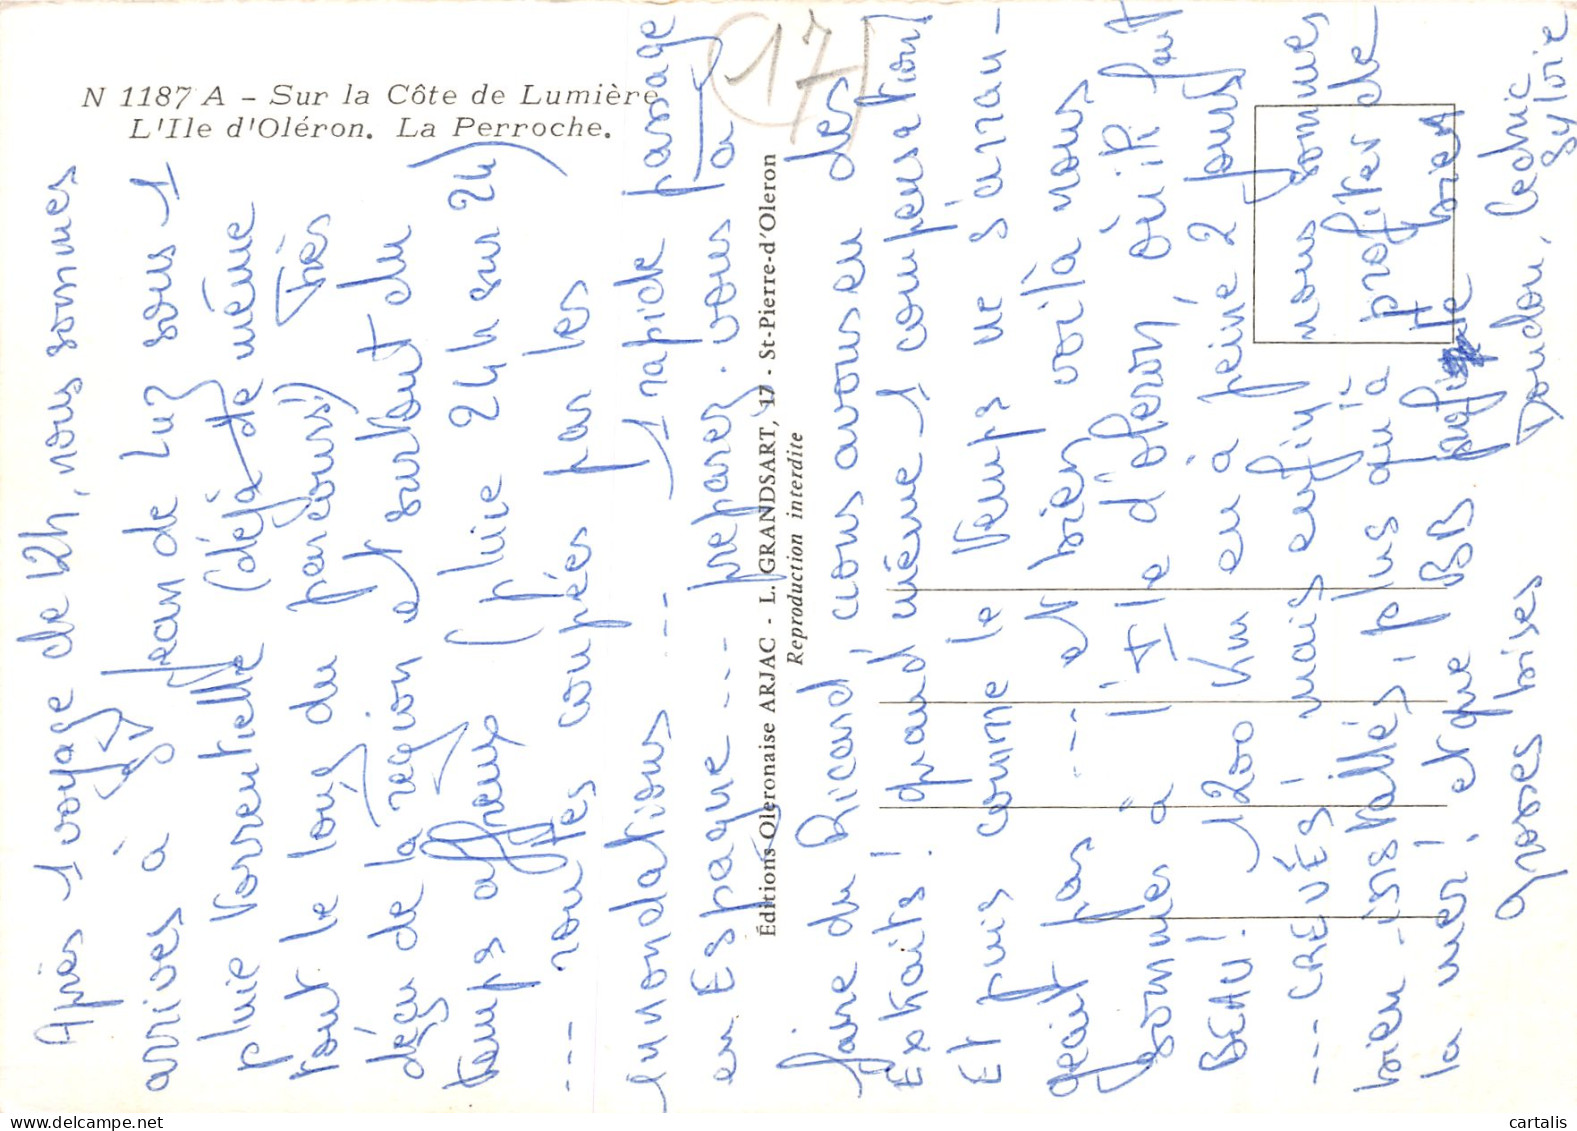 N 1187 A - Sur la Côte de Lumière
L'Ile d'Oléron. La Perroche.
17
Après 1 voyage de 12h, nous sommes
arrivés à St Jean de Luz sous 1
pluie torrentielle (déjà de même
tout le long du parcours) Très
déçu de la région et surtout du
temps affreux (pluie 24h sur 24)
--- routes coupées par les
inondations --- 1 rapide passage
en Espagne --- préparez vous à
faire du Ricard, nous avons eu des
Extraits ! quand même 1 compensation)
Et puis comme le temps ne s'arran-
geait pas --- et bien voilà nous
sommes à l'Ile d'oleron, où il fait
BEAU ! 1200 km en à peine 2 jours
--- CREVÉS ! mais enfin, nous sommes
bien installés, plus qu'à profiter de
la mer ! et que BB
Grosses bises Doudou, Cedric
Sylvie
Éditions Oleronaise ARJAC - L. GRANDSART, 17 - St-Pierre-d'Oleron
Reproduction interdite
cartalis